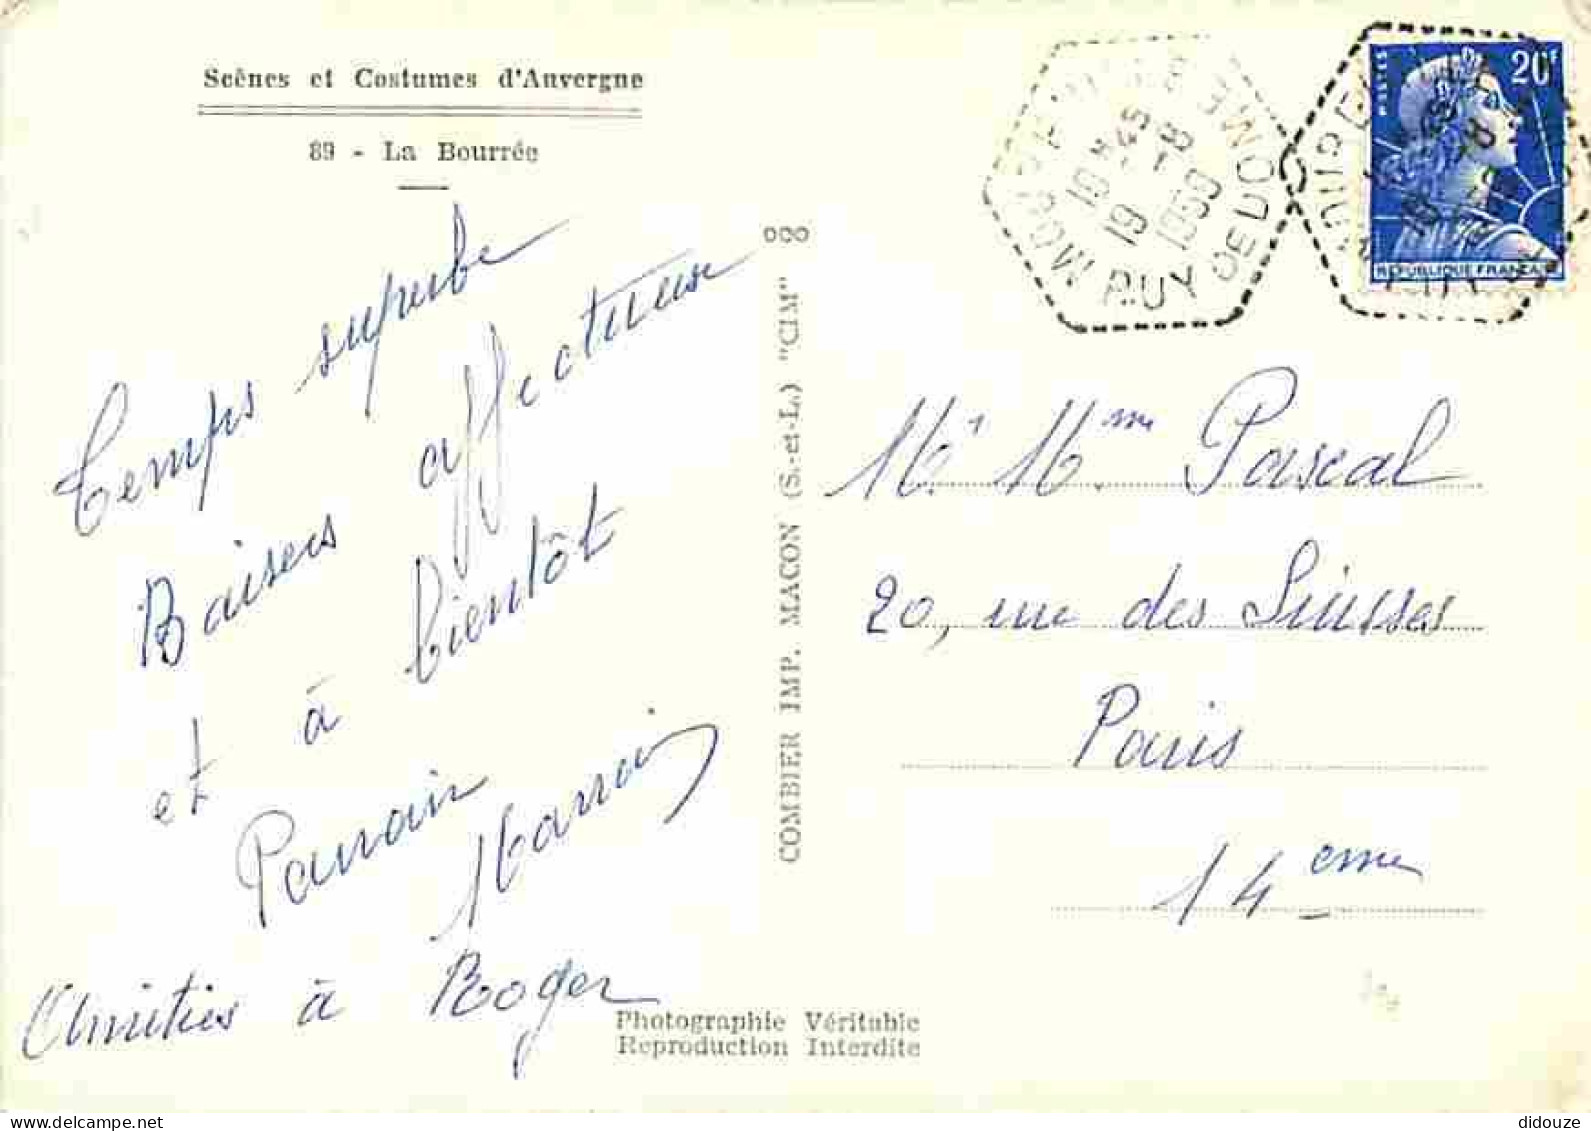 Scènes et Costumes d'Auvergne
89 - La Bourrée
Temps superbe
Baisers affectueux
et à bientôt
Parrain
Marraine
Amitiés à Roger
COMBIER IMP. MACON (S.-et-L.) "CIM"
Photographie Véritable
Reproduction Interdite
PUY DE DOME
19 H 45
19 - 8
1959
POSTES
20F
REPUBLIQUE FRANÇAISE
Mr Mme Pascal
20, rue des Suisses
Paris
14eme
didouze